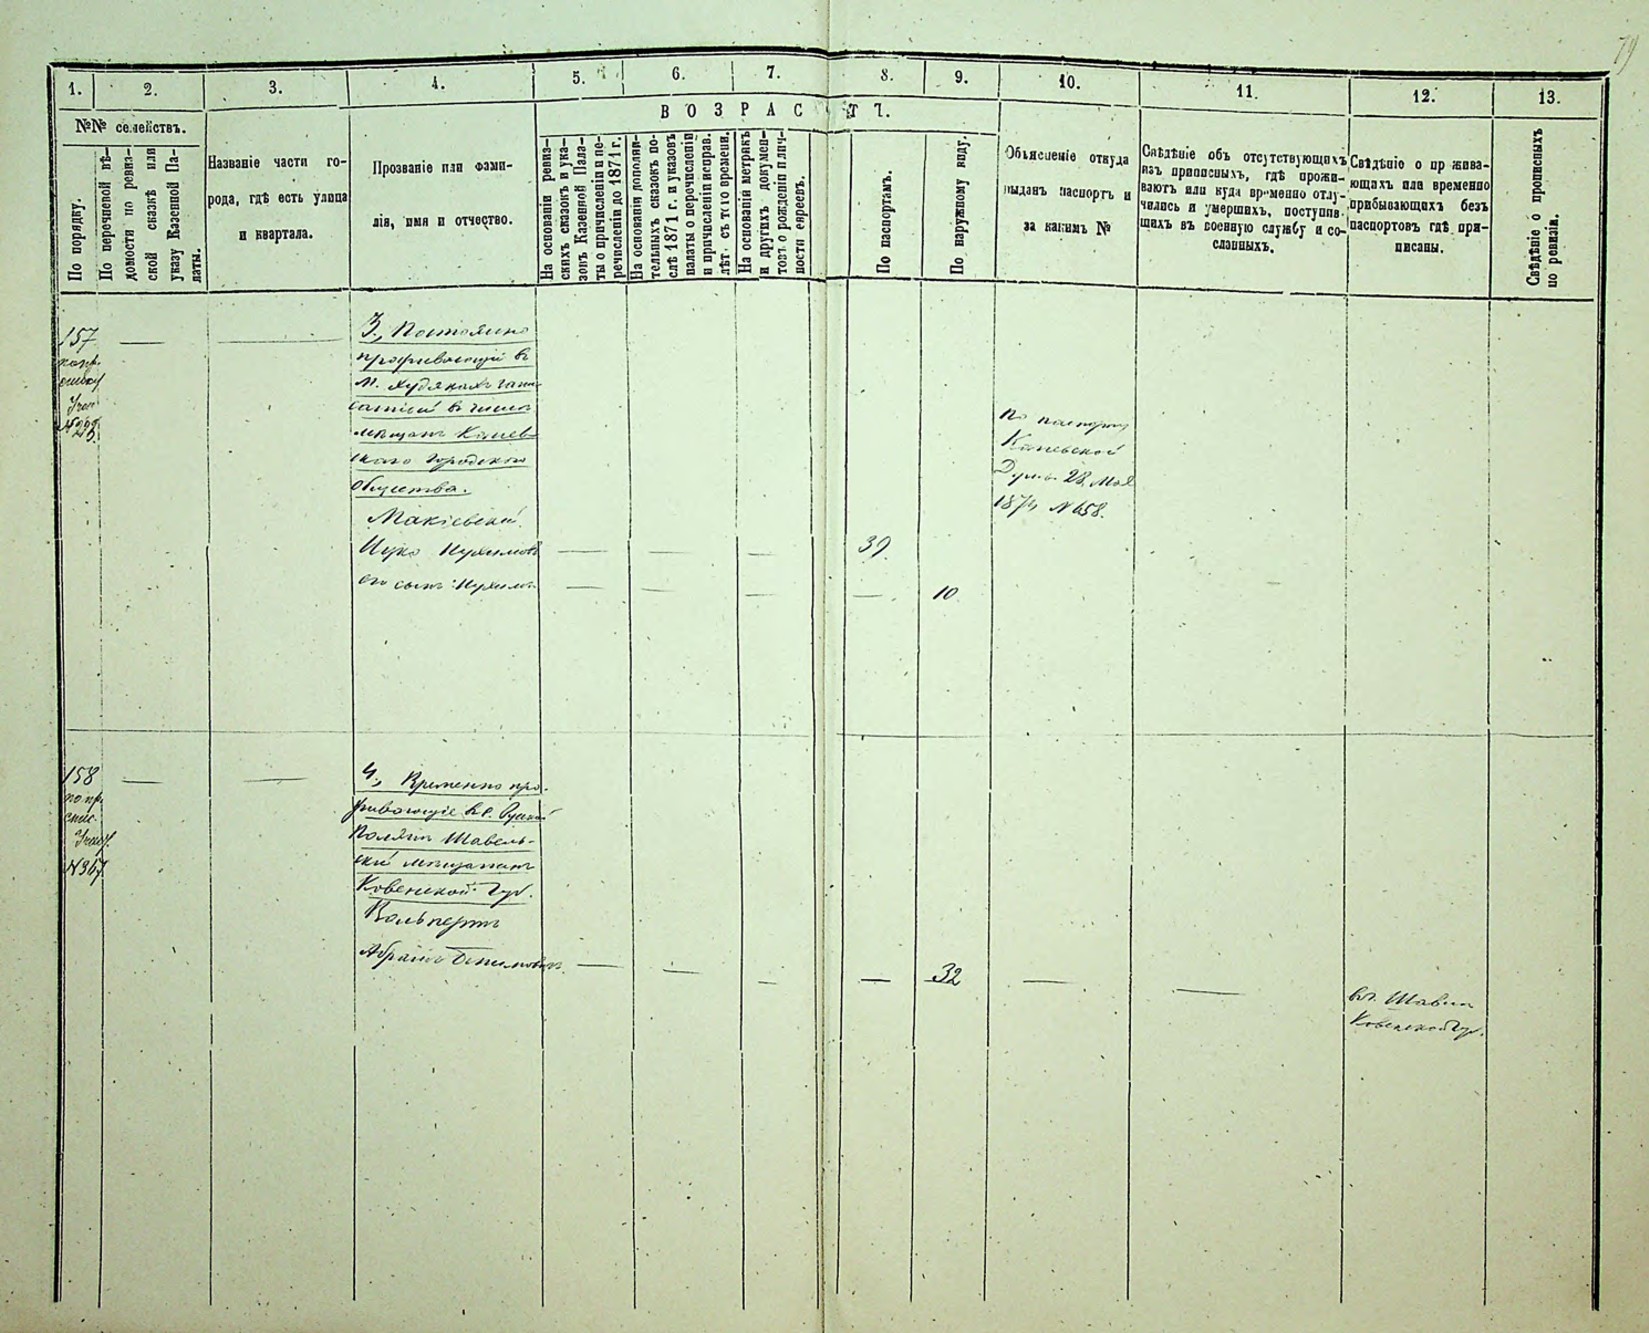 79
1.
2.
3.
4.
5.
6.
7.
8.
9.
10.
11.
12.
13.
№№ семействъ.
ВОЗРАСТЪ.
По порядку.
По перечневой вѣ-
домости по ревиз-
ской сказкѣ или
указу Казенной Па-
латы.
Названіе части го-
рода, гдѣ есть улица
и квартала.
Прозваніе или фами-
лія, имя и отчество.
На основаніи ревиз-
скихъ сказокъ и ука-
зовъ Казенной Пала-
ты о причисленіи и пе-
речисленіи до 1871 г.
На основаніи дополни-
тельныхъ сказокъ по-
слѣ 1871 г. и указовъ
палаты о перечисленіи
и причисленіи исправ.
лѣт. съ того времени.
На основаніи метрикъ
и другихъ докумен-
товъ о рожденіи и лич-
ности евреевъ.
По паспортамъ.
По наружному виду.
Объясненіе откуда
выданъ паспортъ и
за какимъ №
Свѣдѣніе объ отсутствующихъ
изъ приписныхъ, гдѣ прожи-
ваютъ или куда временно отлу-
чились и умершихъ, поступив-
шихъ въ военную службу и со-
сланныхъ.
Свѣдѣніе о прожива-
ющихъ или временно
прибывающихъ безъ
паспортовъ гдѣ при-
писаны.
Свѣдѣніе о прописныхъ
по ревизіи.
157
№ 223
3., Постоянно
проживающій въ
м. Худякахъ
въ числѣ
мѣщанъ Канев-
скаго городскаго
общества.
Макіевскій.
Ицко Нухимовъ
его сынъ Нухимъ
39
10
по паспорту
Каневской
Думы 28 Мая
1874 № 658.
158
№ 367
4., Временно про-
живающіе въ с. Русской
Полянѣ Шавель-
скій мѣщанинъ
Ковенской Губ.
Вольпертъ
Абрамъ
32
въ г. Шавли
Ковенской Гу.